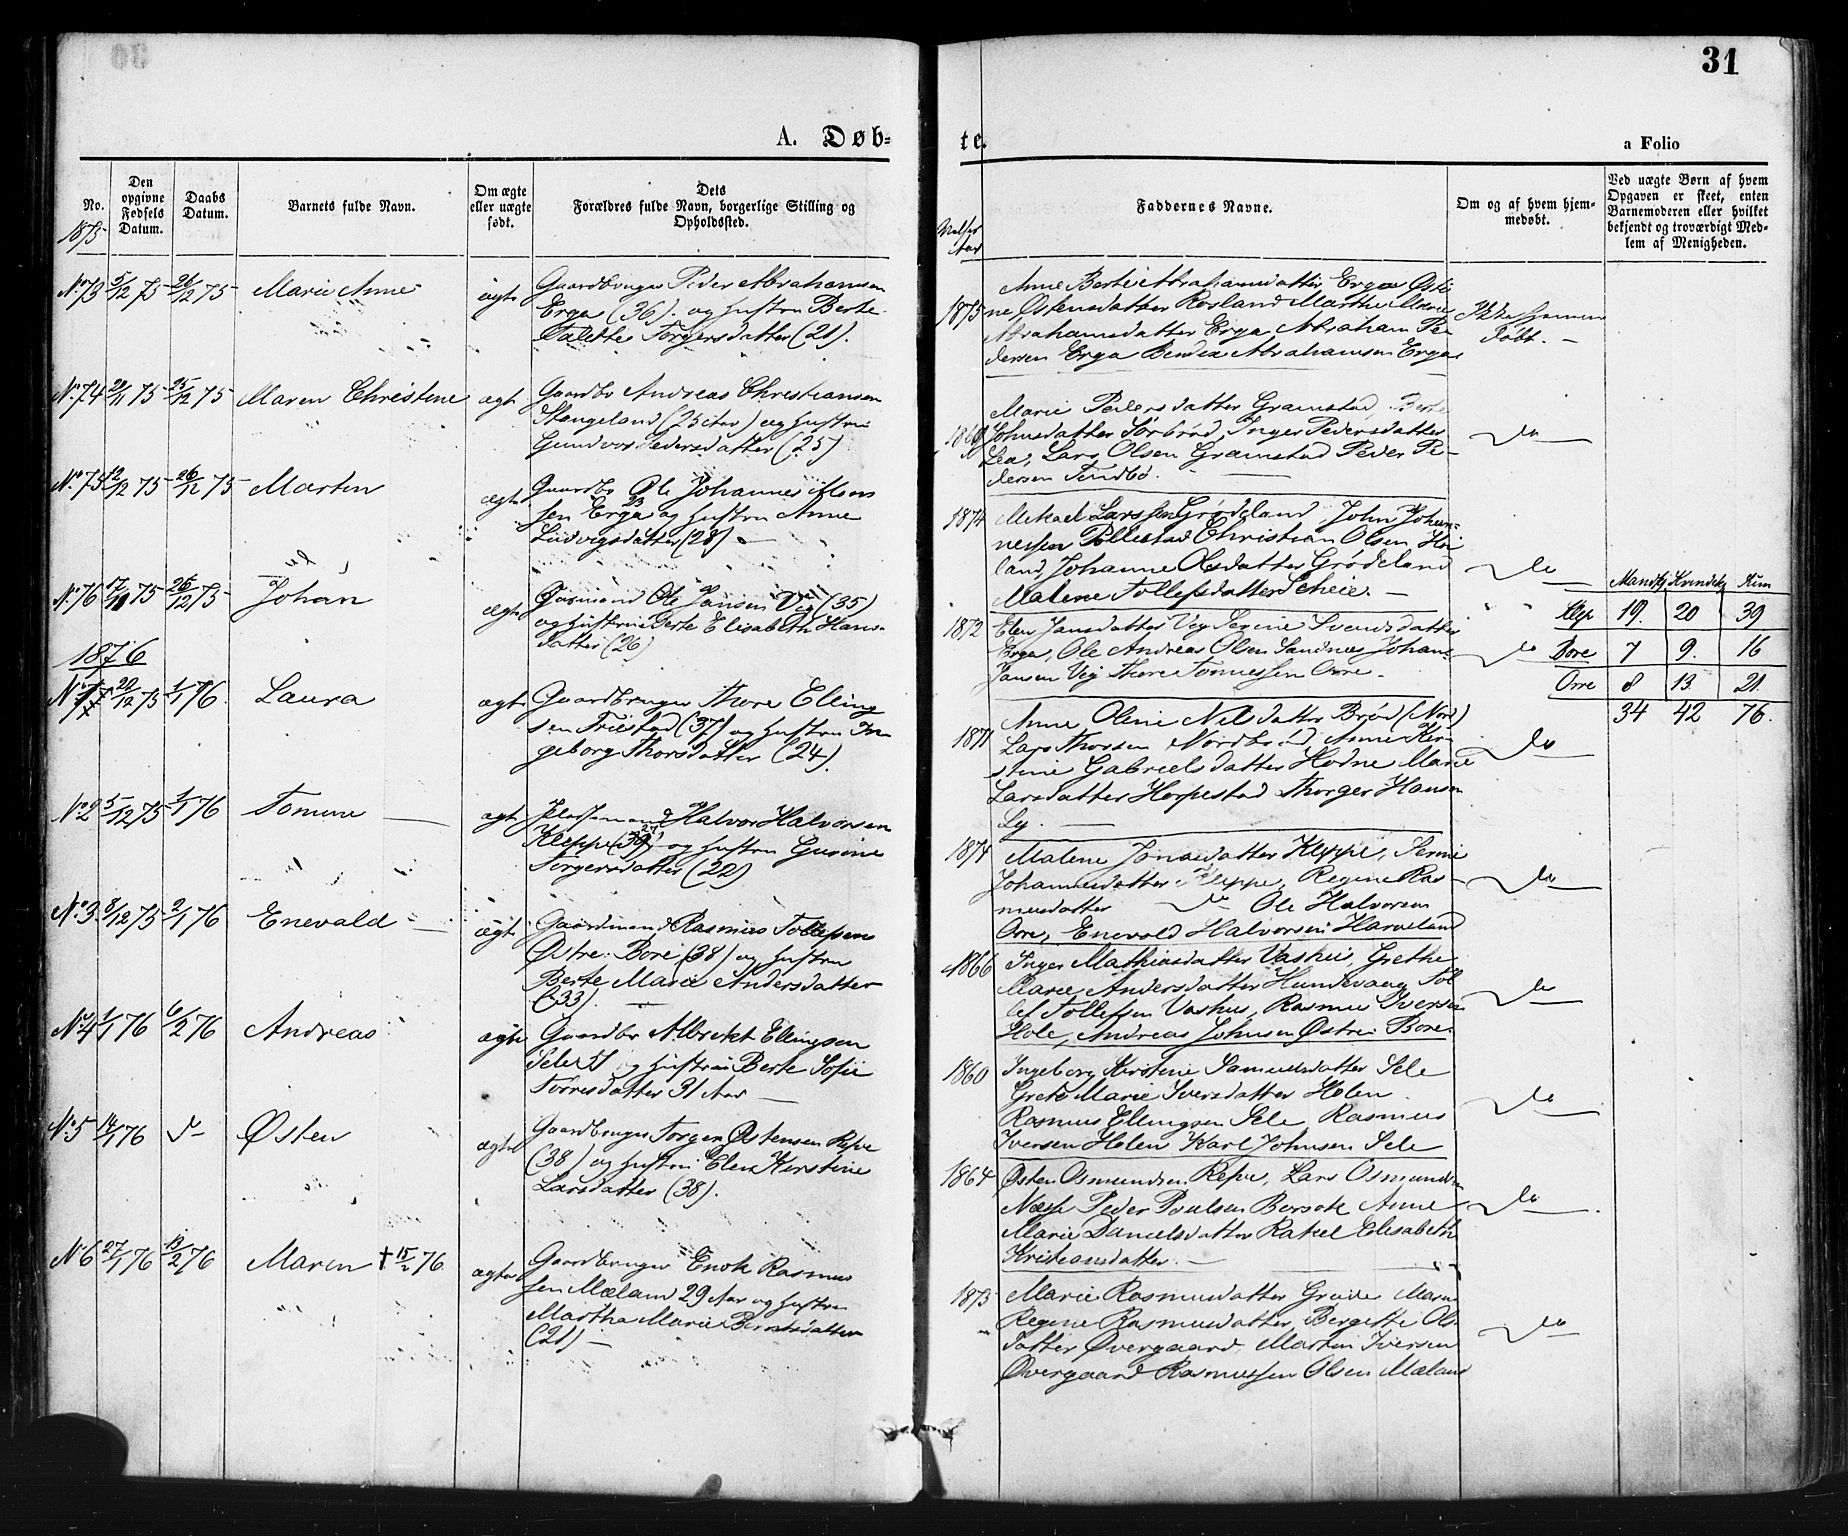 31
A. Døb-
te.
a Folio
No.
Den
opgivne
Fødsels
Datum.
Daabs
Datum.
Barnets fulde Navn.
Om ægte
eller uægte
født.
Dets
Forældres fulde Navn, borgerlige Stilling og
Opholdssted.
Faddernes Navne.
Om og af hvem hjem-
medøbt.
Ved uægte Børn af hvem
Opgaven er skeet, enten
Barnemoderen eller hvilket
bekjendt og troværdigt Med-
lem af Menigheden.
1875
No. 73 5/12 75 26/12 75 Marie Anne ægte
Gaardbruger Peder Abrahamsen
Erga (36) og hustru Berte
Talette Torgersdatter (21).
1875
Anne Bertie Abrahamsdatter Erga Øste-
ne Østensdatter Rosland Marthe Marie
Abrahamsdatter Erga Abraham Pe-
dersen Erga Bendix Abrahamsen Erga
Ikke hjemme
døbt. –
No. 74 29/11 75 25/12 75 Maren Christine ægt
Gaardbr Andreas Christiansen
Stangeland (25 Aar) og hustru
Gundvor Pedersdatter (25)
1869
Marie Pedersdatter Gramstad, Berte
Johnsdatter Sørbrød, Inger Pedersdatter
Lea, Lars Olsen Gramstad Peder Pe-
dersen Tindbø.
do
No. 75 12/12 75 26/12 75 Martin ægte
Gaardbr Ole Johannes
sen Erga 23 og hustru Anne
Ludvigsdatter (28) –
1874
Mikael Larssen Grødeland John Johan-
nessen Pollestad Christian Olsen Høi-
land, Johanne Olsdatter Grødeland
Malene Tollefsdatter Scheie. –
do
No. 76 17/10 75 26/12 75 Johan ægte
Huusmand Ole Jansen Vig (35)
og hustru Berte Elisabeth Hans-
datter (26)
1872
Elen Jansdatter Vig Serine Svendsdatter
Erga, Ole Andreas Olsen Sandnes Johan
Jansen Vig Thore Tonnessen Orre.
do
Mandkj Kvindekj Sum
Klep 19. 20 39
Bore 7 9. 16
Orre 8 13. 21.
34 42 76.
1876
No. 1 20/12 75 1/1 76 Laura ægte
Gaardbruger Thore Elling
sen Friestad (37) og hustru In-
geborg Thorsdatter (24).
1871
Anne Oline Nilsdatter Brød (Nord)
Lars Thorsen Nordbrød, Anne Kir-
stine Gabrielsdatter Hodne Marie
Larsdatter Horpestad Thorger Hansen
Ly. –
do
No. 2 5/12 75 1/1 76 Tomine ægt
Halvor Halvorsen
Kleppe (27) og hustru Gurine
Torgersdatter (22)
1874
Malene Jonasdatter Kleppe, Serine
Johannesdatter Kleppe, Regine Ras-
musdatter do Ole Halvorsen
Orre, Enevald Halvorsen Harveland
do
No. 3 8/12 75 2/1 76 Enevald ægt
Gaardmand Rasmus Tollefsen
Østre Bore (38) og hustru
Berte Marie Andersdatter
(33).
1866
Inger Mathiasdatter Vashus, Grethe
Marie Andersdatter Hundevaag Tol-
lef Tollefsen Vashus, Rasmus Iversen
Hole, Andreas Johnsen Østre Bore.
do
No. 4 1/1 76 6/2 76 Andreas ægte
Gaardbr Albrekt Ellingsen
Sele og hustru Berte Sofie
Torresdatter 31 Aar –
1860
Ingeborg Kirstine Samuelsdatter Sele
Grete Marie Iversdatter Holen
Rasmus Ellingsen Sele Rasmus
Iversen Helen Karl Johnsen Sele
do
No. 5 14/1 76 d– Østen ægte
Gaardbruger Torger Østensen Repe
(38) og hustru Elen Kirstine
Larsdatter (38).
1864
Østen Osmundsen Repe, Lars Osmundsen
Næsse Peder Poulsen Borsok Anne
Marie Danielsdatter Rakel Elisabeth
Kristiansdatter. –
do
No. 6 27/1 76 13/2 76 Maren † 15/2 76. ægte
Gaardbruger Enok Rasmus
sen Mæland 29 Aar og hustru
Martha Marie Berntsdatter
(21) –
1873
Marie Rasmusdatter Grude Maren
Regine Rasmusdatter, Bergitte Ols-
datter Øvergaard, Martin Iversen
Øvergaard Rasmussen Olsen Mæland
do